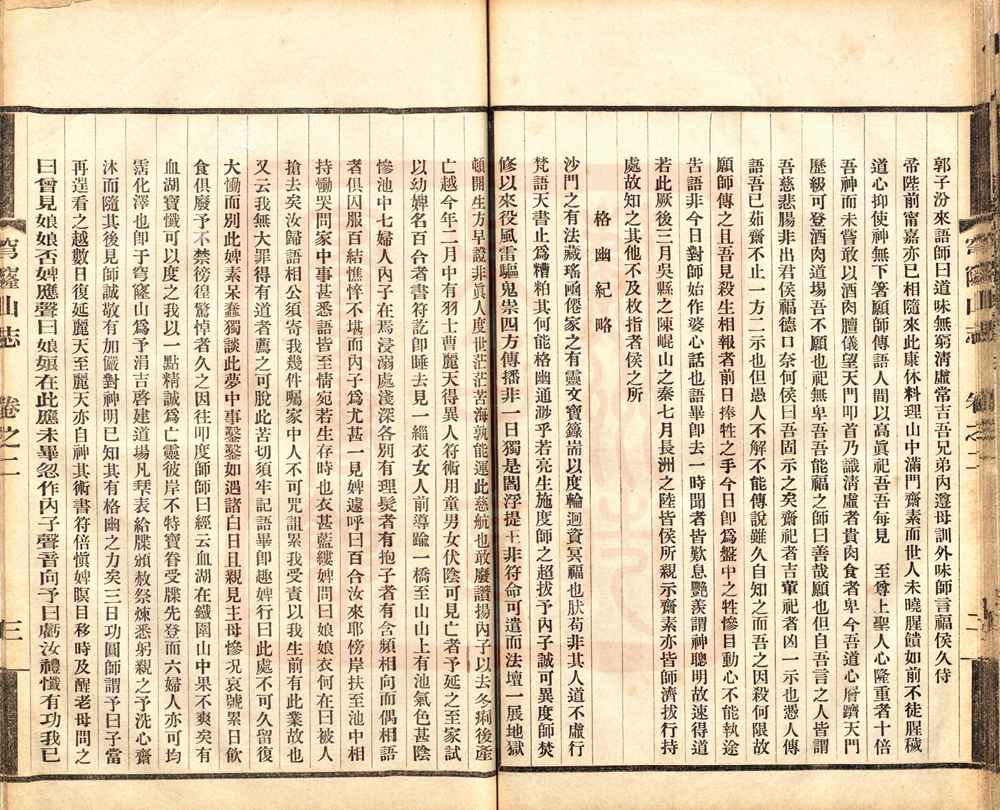 郭子汾來語師曰道味無窮清虛常吉吾兄弟內遵母訓外味師言福侯久侍
帝陛前甯嘉亦已相隨來此康休料理山中滿門齋素而世人未曉腥饋如前不徒腥穢
道心抑使神無下箸願師傳語人間以高眞祀吾吾每見　至尊上聖人心隆重者十倍
吾神而未嘗敢以酒肉膻儀望天門叩首乃識清虛者貴肉食者卑今吾道心屑躋天門
歷級可登酒肉道場吾不願也祀無卑吾吾能福之師曰善哉願也但自吾言之人皆謂
吾慈悲腸非出君侯福德口奈何侯曰吾固示之矣齋祀者吉葷祀者凶一示也憑人傳
語吾已茹齋不止一方二示也但愚人不解不能傳說雖久自知之而吾之因殺何限故
願師傳之且吾見殺生相報者前日捧牲之手今日卽爲盤中之牲慘目動心不能執途
告語非今日對師始作婆心話也語畢卽去一時聞者皆歎息艷羨謂神聰明故速得道
若此厥後三月吳縣之陳崐山之秦七月長洲之陸皆侯所親示齋素亦皆師濟拔行持
處故知之其他不及枚指者侯之所
格幽紀略
沙門之有法藏瑤凾僊家之有靈文寶籙耑以度輪迴資冥福也肰苟非其人道不虛行
梵語天書止爲糟粕其何能格幽通渺乎若亮生施度師之超拔予內子誠可異度師焚
修以來役風雷驅鬼祟四方傳播非一日獨是閻浮提土非符命可遣而法壇一展地獄
頓開生方早證非眞人度世茫茫苦海孰能運此慈航也敢廢讚揚內子以去冬痢後產
亡越今年二月中有羽士曹麗天得異人符術用童男女伏陰可見亡者予延之至家試
以幼婢名百合者書符訖卽睡去見一緇衣女人前導踰一橋至山山上有池氣色甚陰
慘池中七婦人內子在焉浸溺處淺深各別有理髮者有抱子者有含頻相向而偶相語
者俱囚服百結憔悴不堪而內子爲尤甚一見婢遽呼曰百合汝來耶傍岸扶至池中相
持慟哭問家中事甚悉語皆至情宛若生存時也衣甚藍縷婢問曰娘娘衣何在曰被人
搶去矣汝歸語相公須寄我幾件囑家中人不可咒詛累我受責以我生前有此業故也
又云我無大罪得有道者薦之可脫此苦切須牢記語畢卽趣婢行曰此處不可久留復
大慟而別此婢素呆蠢獨談此夢中事鑿鑿如遇諸白日且親見主母慘況哀號累日飮
食俱廢予不禁徬徨驚悼者久之因往叩度師師曰經云血湖在鐵圍山中果不爽矣有
血湖寶懺可以度之我以一點精誠爲亡靈彼岸不特寶眷受牒先登而六婦人亦可均
霑化澤也卽于穹窿山爲予涓吉啓建道場凡琹表給牒頒赦祭煉悉躬親之予洗心齋
沐而隨其後見師誠敬有加儼對神明已知其有格幽之力矣三日功圓師謂予曰子當
再逞看之越數日復延麗天至麗天亦自神其術書符倍愼婢瞑目移時及醒老母問之
曰曾見娘娘否婢應聲曰娘娘在此應未畢忽作內子聲音向予曰虧汝禮懺有功我已
穹窿山誌　卷之二　三
穹窿山誌　卷之二　二